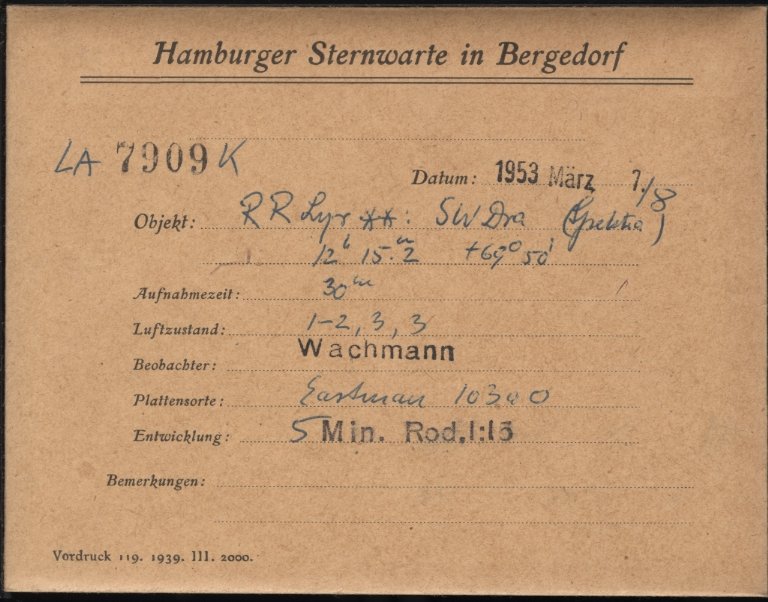 Hamburger Sternwarte in Bergedorf
LA 7909 K
Datum: 1953 März 7./8
Objekt: RR Lyr **: SW Dra (Spektra)
12h 15.m2 +69° 50'
Aufnahmezeit: 30m
Luftzustand: 1-2, 3, 3
Beobachter: Wachmann
Plattensorte: Eastman 103aO
Entwicklung: 5 Min. Rod. 1:15
Bemerkungen:
Vordruck 119. 1939. III. 2000.